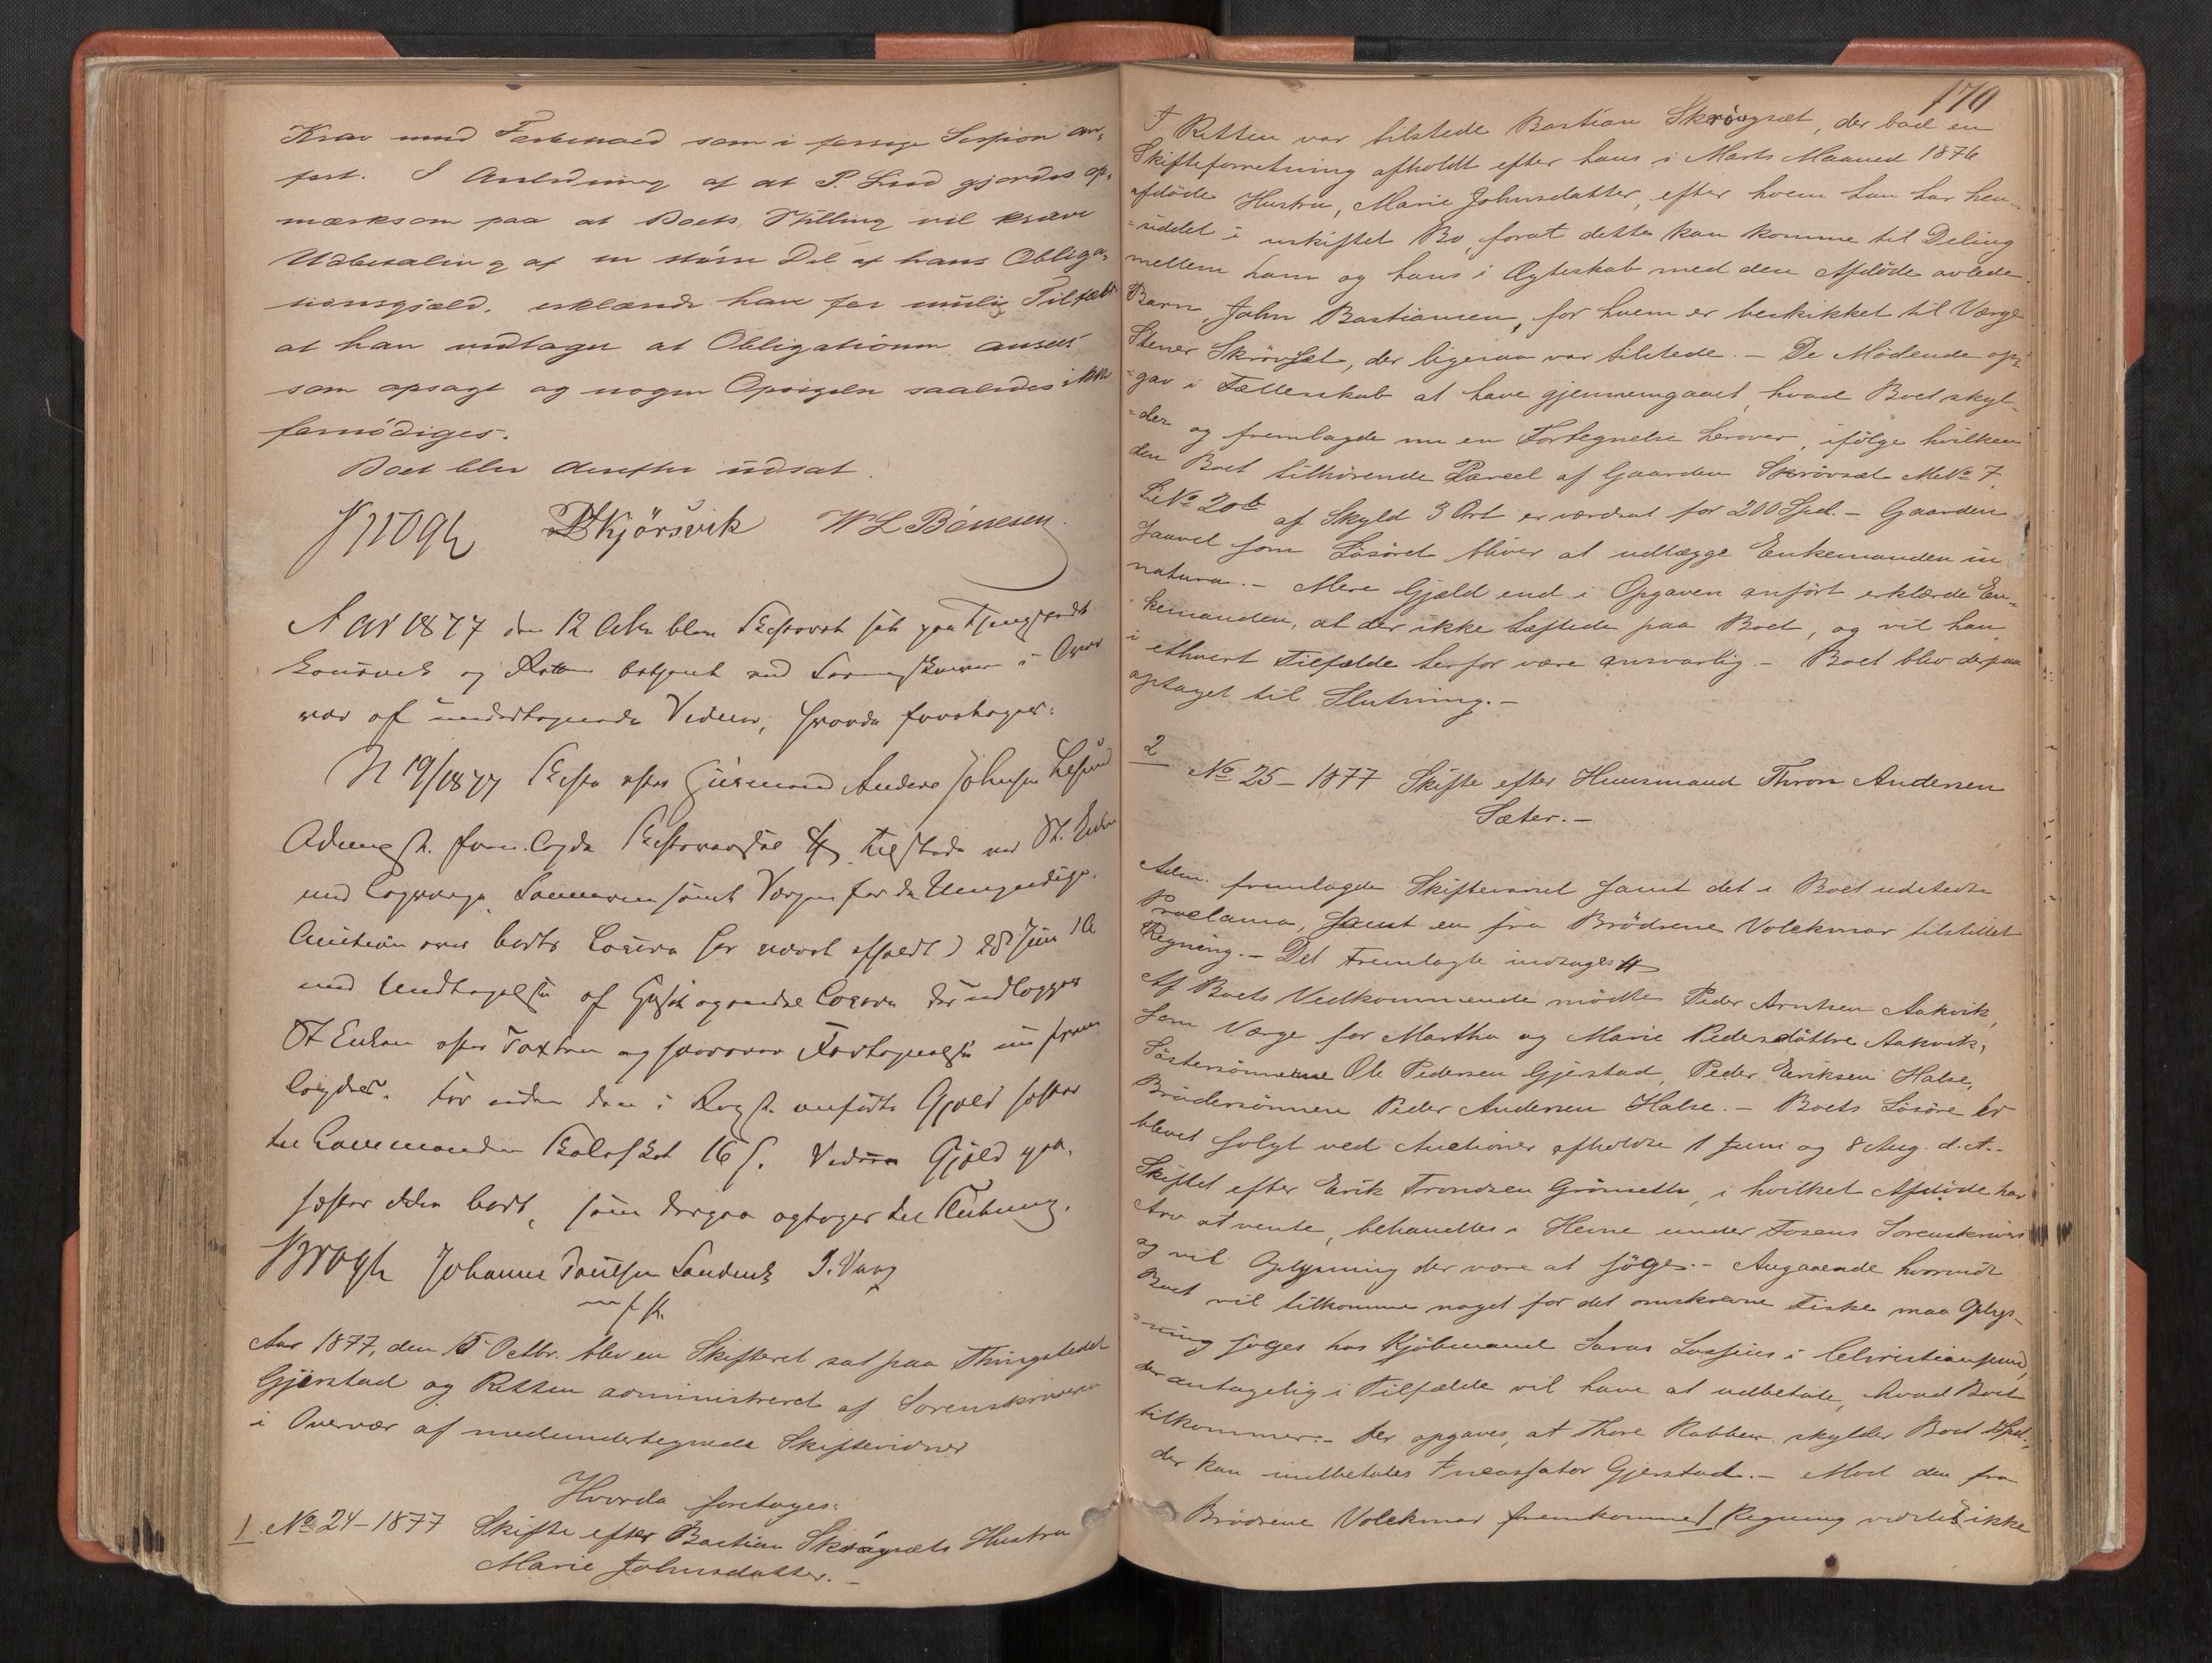 Krav med Forbehold som i forrige Session an-
ført. I Anledning af at P. Lind gjordes op-
mærksom paa at Boets Stilling vil kræve
Udbetaling af en större Del af hans Obliga-
tionsgjæld, erklærede han for mulig Tilfælde
at han modtager at Obligationen ansees
som opsagt og nogen Opsigelse saaledes ikke
fornödiges.
Boet blev derefter udsat.
Krogh Skjörsvik W L Bönesen
Aar 1877 den 12 blev Skifteret sat paa
og Retten betjent ved Sorenskriveren i Over
vær af undertegnede Vidner, hvorda foretages:
N 19/1877 Skifte efter Anders Johnsen
Adm. fremlagde St. Enken
med Laugværge, Sönnerne samt Værgen for de Umyndige.
Auction over Boets Lösöre har været afholdt 28 Juni
med Undtagelse af og andre Lösöre der udlægges
St. Enken efter Taxten og hvorover Fortegnelse nu frem
lagdes. For uden den i Reg. anförte Gjæld hefter
til Lensmanden 16 s. Videre Gjæld paa-
hefter ikke Boet, som derpaa optages til Slutning.
Krogh Johannes Paulsen Sandvik I. Vaag
m f P.
Aar 1877, den 15 Octbr. blev en Skifteret sat paa Thingstedet
Gjerstad og Retten administreret af Sorenskriveren
i Overvær af medundertegnede Skiftevidner
Hvorda foretages:
1. No 24-1877 Skifte efter Bastian Skrövsæts Hustru
Marie Johnsdatter.-
170
I Retten var tilstede Bastian Skrövsæt, der bad en
Skifteforretning afholdt efter hans i Marts Maaned 1876
afdöde Hustru, Marie Johnsdatter, efter hvem han har hen-
-siddet i uskiftet Bo, forat dette kan komme til Deling
mellem ham og hans i Ægteskab med den Afdöde avlede
Barn, John Bastiansen, for hvem er beskikket til Værge
Stener Skrövset, der ligesaa var tilstede.- De Mödende op-
-gav i Fællesskab at have gjennemgaaet, hvad Boet skyl-
-der og fremlagde nu en Fortegnelse herover, ifölge hvilken
den Boet tilhörende Parcel af Gaarden Skrövsæt MNo 7,
LNo 20b af Skyld 3 Ort er værdsat for 200 Spd.- Gaarden
saavel som Lösöret bliver at udlægge Enkemanden in
natura.- Mere Gjæld end i Opgaven anfört erklærede En-
-kemanden, at der ikke heftede paa Boet, og vil han
i ethvert Tilfælde herfor være ansvarlig.- Boet blev derpaa
optaget til Slutning.-
2
No 25-1877 Skifte efter Huusmand Thron Andersen
Sæter.-
Adm. fremlagde Skifteværdsel samt det i Boet udstedte
Proclama, samt en fra Brödrene Volckmar tilstillet
Regning.- Det Fremlagte indtages #
Af Boets Vedkommende mödte Peder Arntsen Aakvik,
som Værge for Martha og Marie Pedersdöttre Aakvik,
Söstersönnerne Ole Pedersen Gjerstad, Peder Eriksen Halse,
Brödersönnen Peder Andersen Halse.- Boets Lösöre er
blevet solgt ved Auctioner afholdte 1 Juni og 8 Aug. d.A.-
Skiftet efter Erik Trondsen Grönsett, i hvilket Afdöde har
Arv at vente, behandles i Hevne under Fosens Sorenskriveri
og vil Oplysning der være at söges.- Angaaende hvorvidt
Boet vil tilkomme noget for det omskrevne Fiske maa Oplys-
-ning söges hos Kjöbmand Saras Lossius i Christianssund,
der antagelig i Tilfælde vil have at udbetale, hvad Boet
tilkommer.- Der opgaves, at Thore Rabben skylder Boet Spd.,
der kan indbetales Incassator Gjerstad.- Mod den fra
Brödrene Volckmar fremkomne Regning vidstes ikke